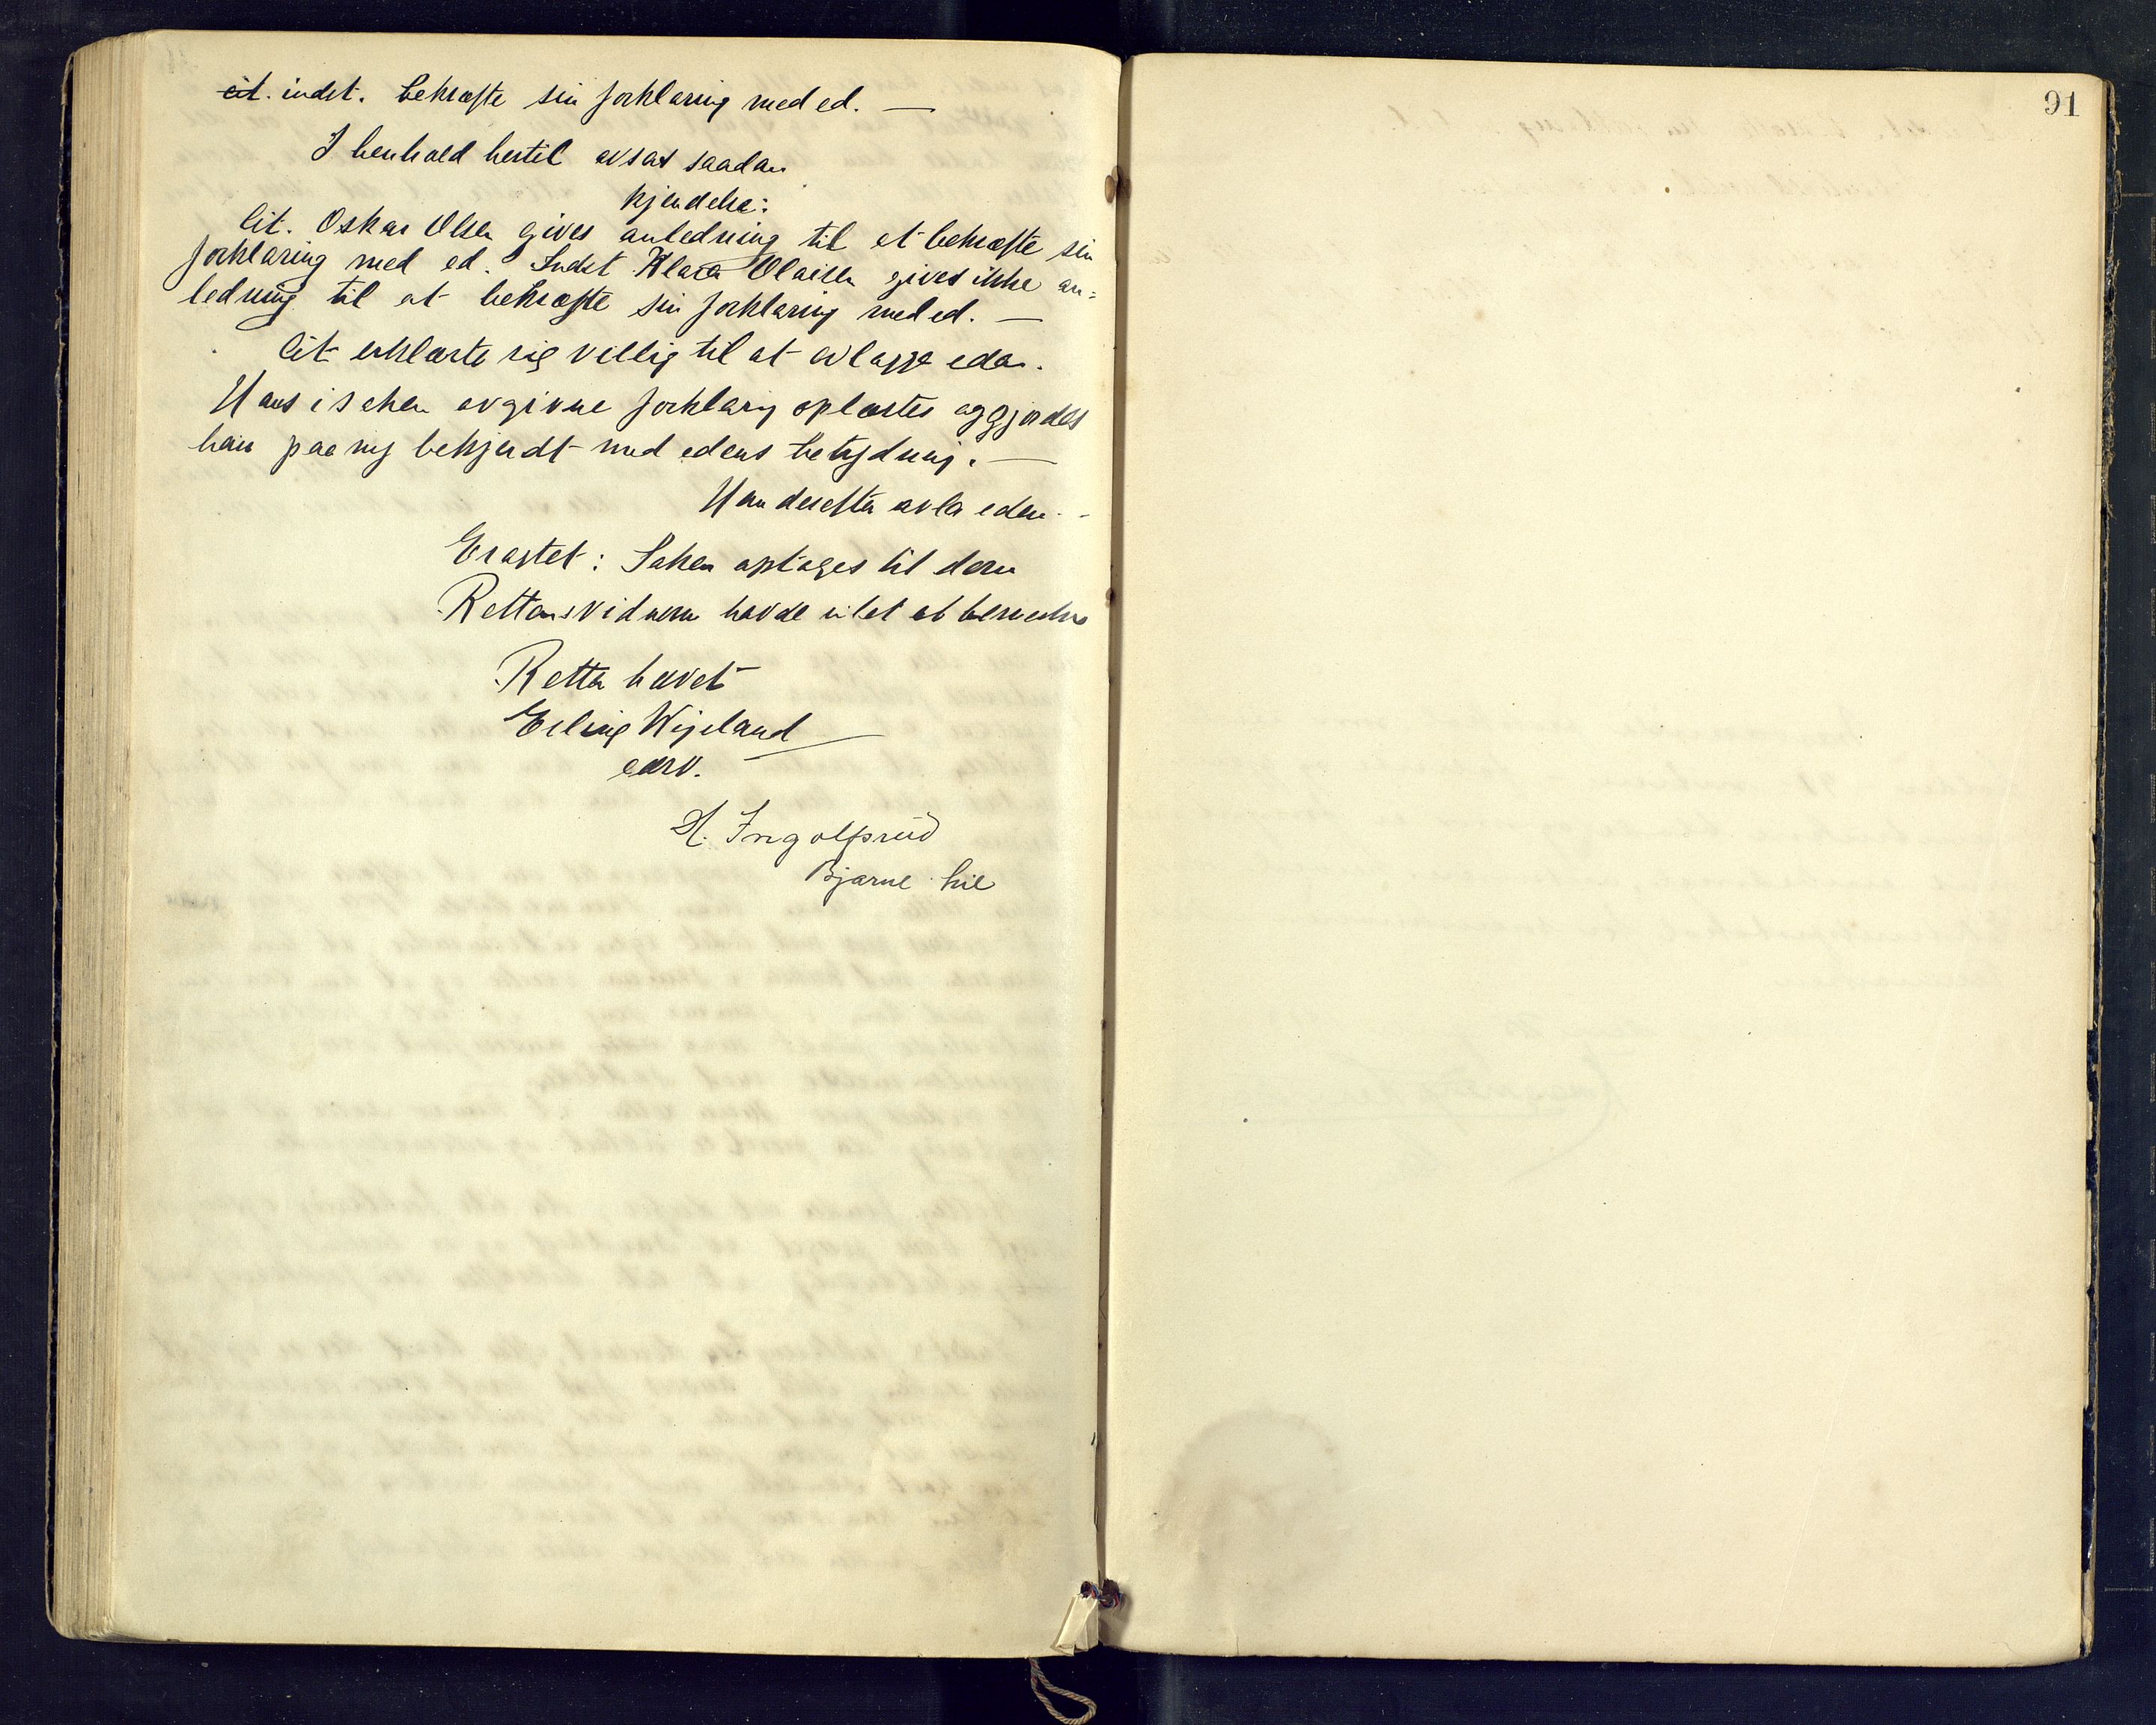 cit. indst. bekræfte sin forklaring med ed. —
I henhold hertil avsas saadan
kjendelse:
Cit. Oskar Olsen gives anledning til at bekræfte sin
forklaring med ed. Indst Klara Olaisen gives ikke an=
ledning til at bekræfte sin forklaring med ed. —
Cit erklærte sig villig til at avlægge eden.
Hans i saken avgivne forklaring oplæstes og gjordes
han paa ny bekjendt med edens betydning. —
Han derefter avla eden. -
Eragtet: Saken optages til dom
Rettens vidnene havde intet at bemerke
Retten hævet
Erling Wigeland
edsv.
H. Ingolfsrud
Bjarne Lie
91